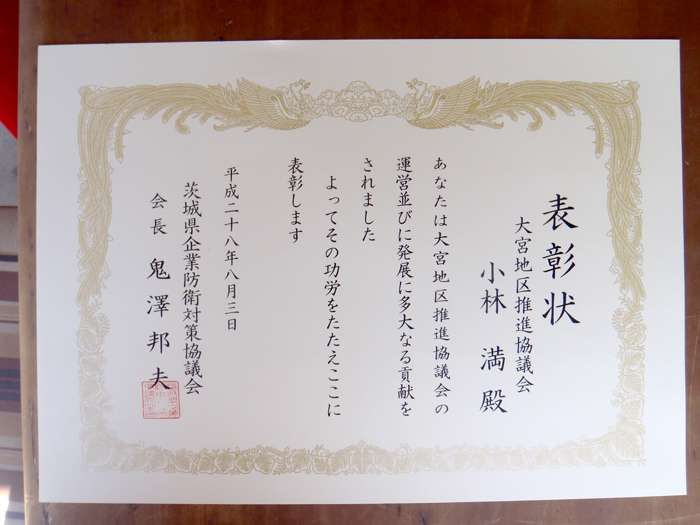 表彰状
大宮地区推進協議会
小林 満 殿
あなたは大宮地区推進協議会の
運営並びに発展に多大なる貢献を
されました
よってその功労をたたえここに
表彰します
平成二十八年八月三日
茨城県企業防衛対策協議会
会長 鬼澤邦夫